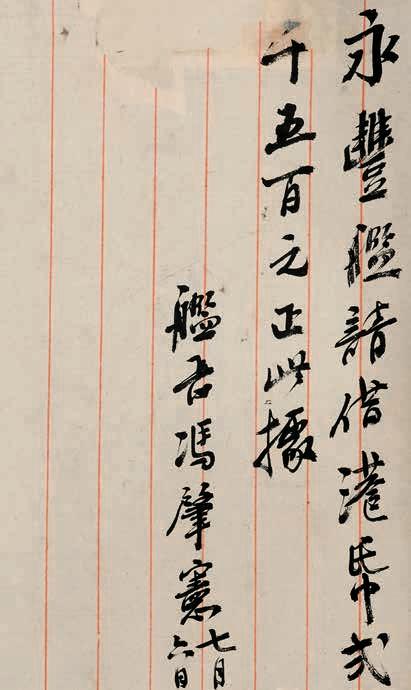 永豐艦請借港帋弍
千五百元正此據
艦長馮肇憲
七月
六日